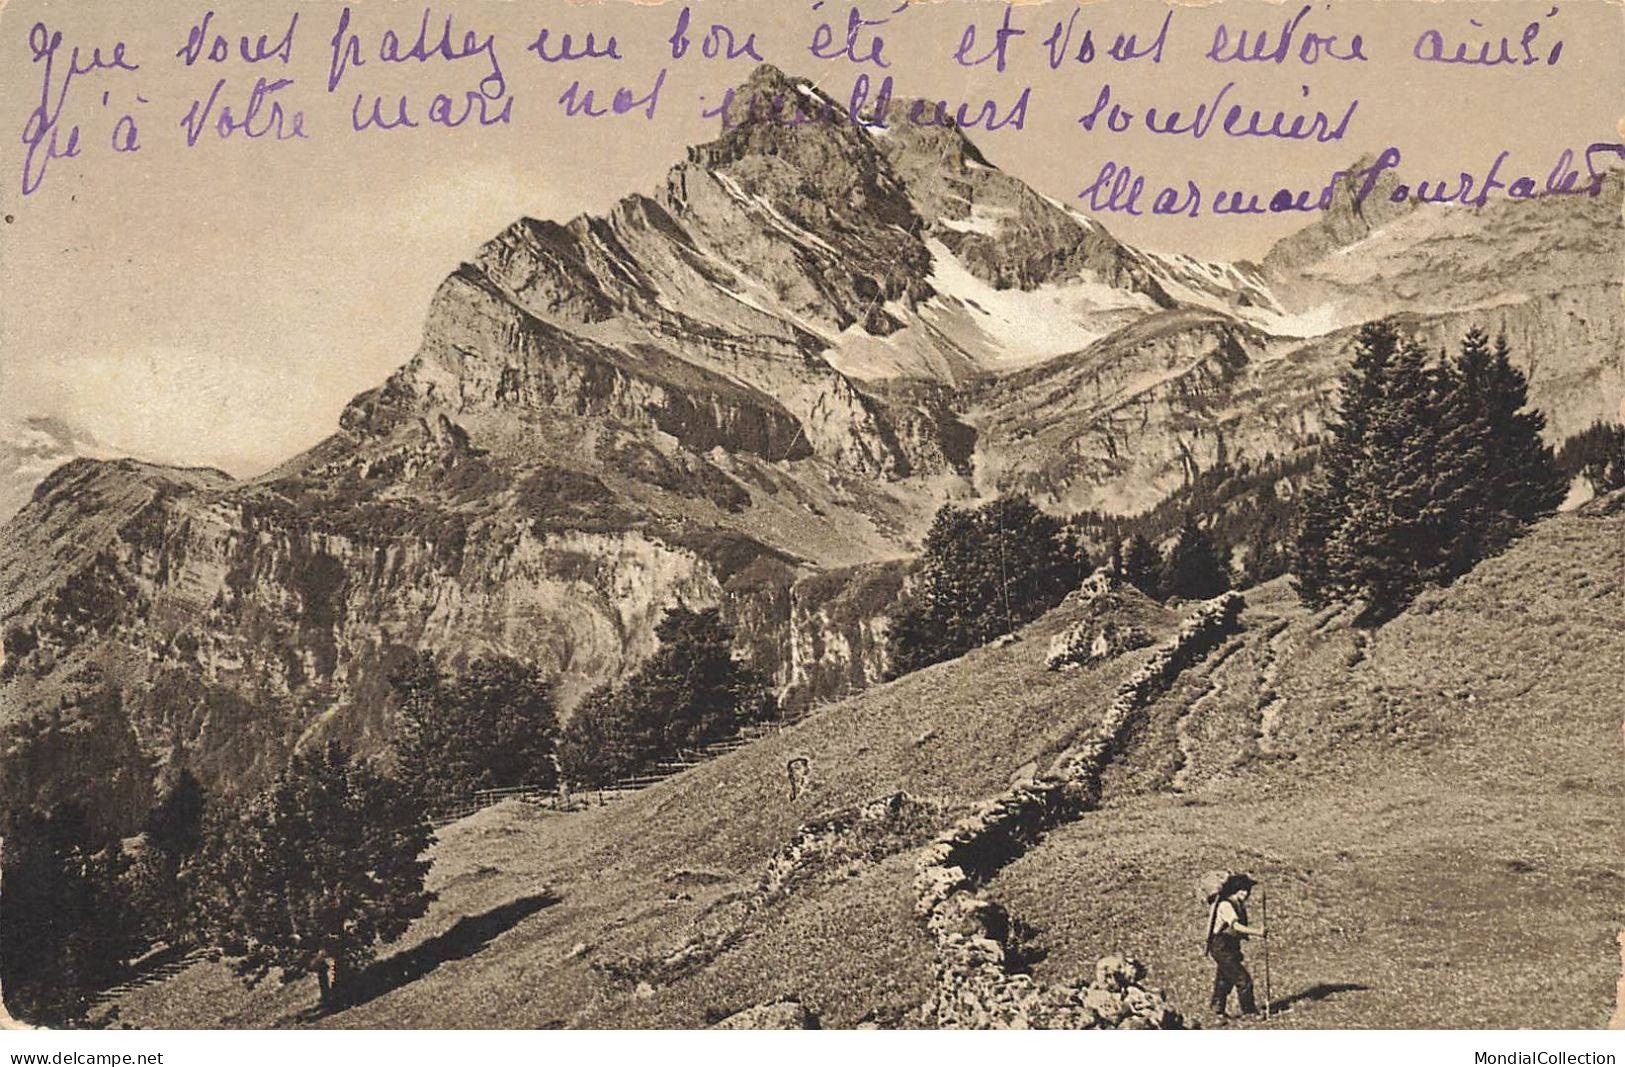 que vous passez un bon été et vous envoie ainsi
qu'à votre mari nos meilleurs souvenirs
Pourtalès
www.delcampe.net
MondialCollection